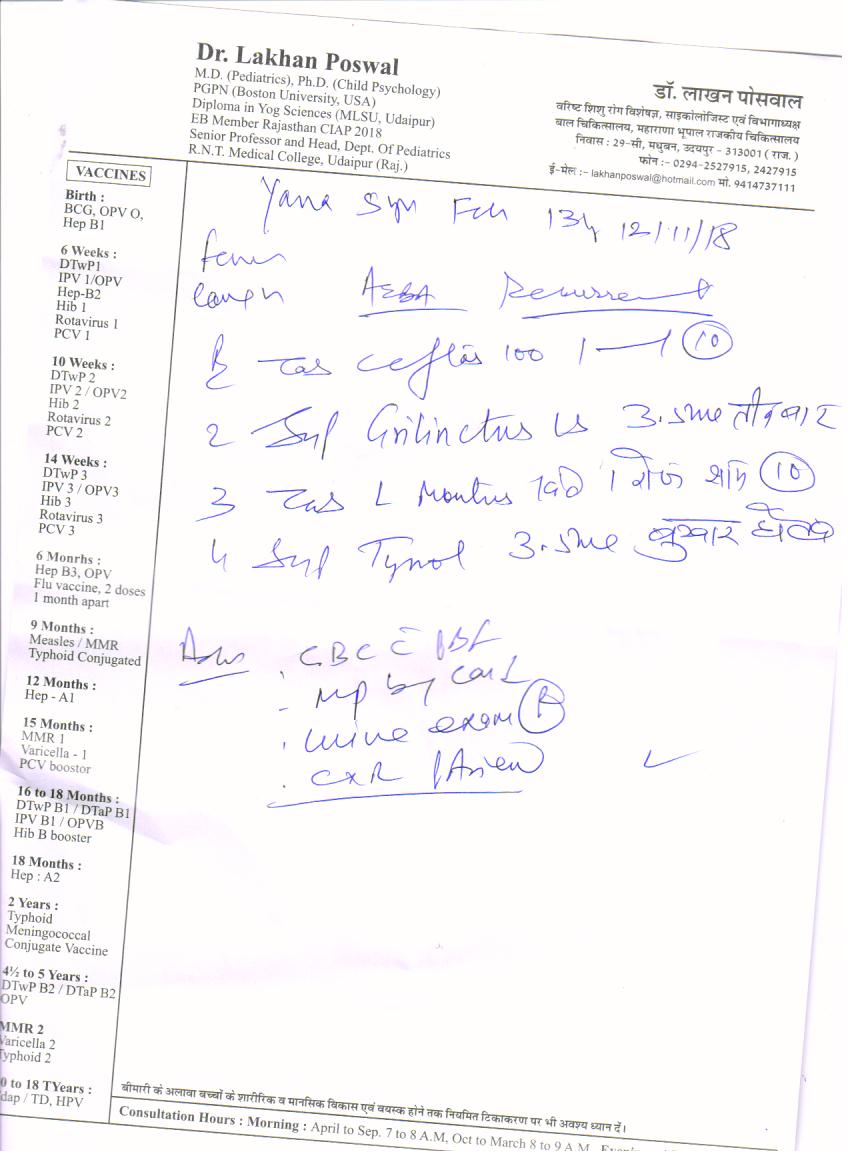 Dr. Lakhan Poswal
M.D. (Pediatrics), Ph.D. (Child Psychology)
PGPN (Boston University, USA)
Diploma in Yog Sciences (MLSU, Udaipur)
EB Member Rajasthan CIAP 2018
Senior Professor and Head, Dept. Of Pediatrics
R.N.T. Medical College, Udaipur (Raj.)
डॉ. लाखन पोसवाल
वरिष्ठ शिशु रोग विशेषज्ञ, साइकोलोजिस्ट एवं विभागाध्यक्ष
बाल चिकित्सालय, महाराणा भूपाल राजकीय चिकित्सालय
निवास : 29-सी, मधुबन, उदयपुर - 313001 ( राज. )
फोन :- 0294-2527915, 2427915
ई-मेल :- lakhanposwal@hotmail.com मो. 9414737111
VACCINES
Birth :
BCG, OPV O,
Hep B1
6 Weeks :
DTwP1
IPV 1/OPV
Hep-B2
Hib 1
Rotavirus 1
PCV 1
10 Weeks :
DTwP 2
IPV 2 / OPV2
Hib 2
Rotavirus 2
PCV 2
14 Weeks :
DTwP 3
IPV 3 / OPV3
Hib 3
Rotavirus 3
PCV 3
6 Monrhs :
Hep B3, OPV
Flu vaccine, 2 doses
1 month apart
9 Months :
Measles / MMR
Typhoid Conjugated
12 Months :
Hep - A1
15 Months :
MMR 1
Varicella - 1
PCV boostor
16 to 18 Months :
DTwP B1 / DTaP B1
IPV B1 / OPVB
Hib B booster
18 Months :
Hep : A2
2 Years :
Typhoid
Meningococcal
Conjugate Vaccine
4½ to 5 Years :
DTwP B2 / DTaP B2
OPV
MMR 2
Varicella 2
Typhoid 2
0 to 18 TYears :
dap / TD, HPV
Yana 12/11/18
Recurrent
100 1 — 1 10
2 Syp Grilinctus LS 3.5ml तीन बार
3 L Montus 1 रोज शाम 10
4 Syp Tynol 3.5ml बुखार
CBC
MP by card
urine exam R
CXR
बीमारी के अलावा बच्चों के शारीरिक व मानसिक विकास एवं वयस्क होने तक नियमित टिकाकरण पर भी अवश्य ध्यान दें।
Consultation Hours : Morning : April to Sep. 7 to 8 A.M, Oct to March 8 to 9 A.M,